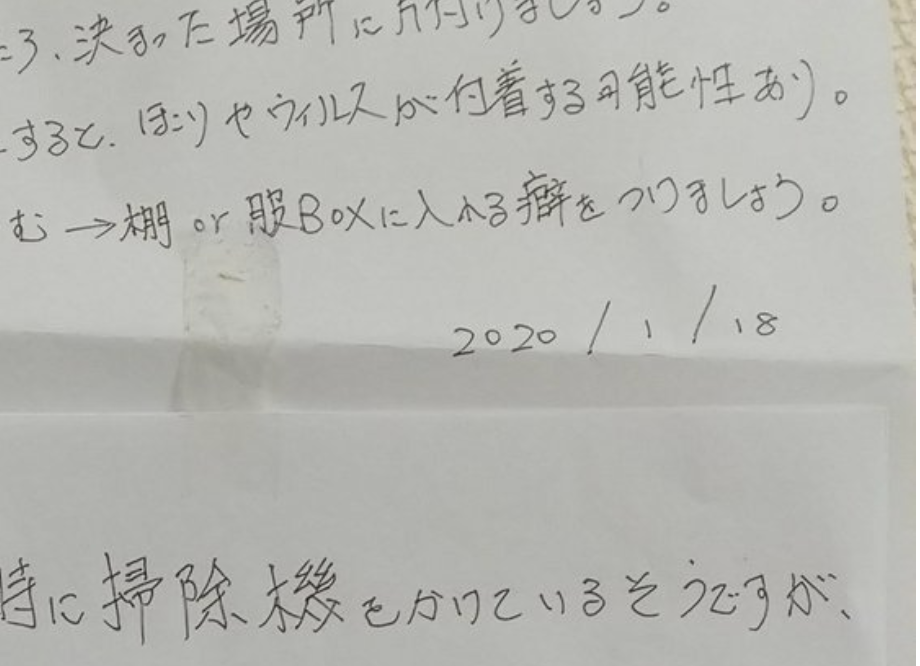 たら、決まった場所に片付けましょう。
すると、ほこりやウィルスが付着する可能性あり。
む→棚 or 服BOXに入れる癖をつけましょう。
2020/1/18
時に掃除機をかけているそうですが、